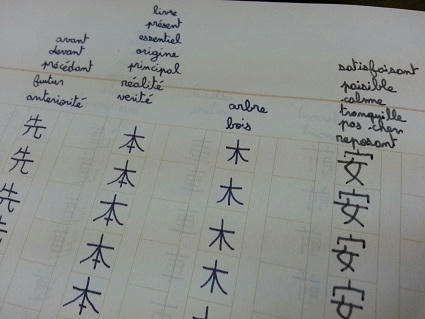 avant
devant
précédant
futur
anteriorité
先
先
先
livre
présent
essentiel
origine
principal
réalité
verité
本
本
本
本
本
arbre
bois
木
木
木
木
satisfaisant
paisible
calme
tranquille
pas cher
reposant
安
安
安
安